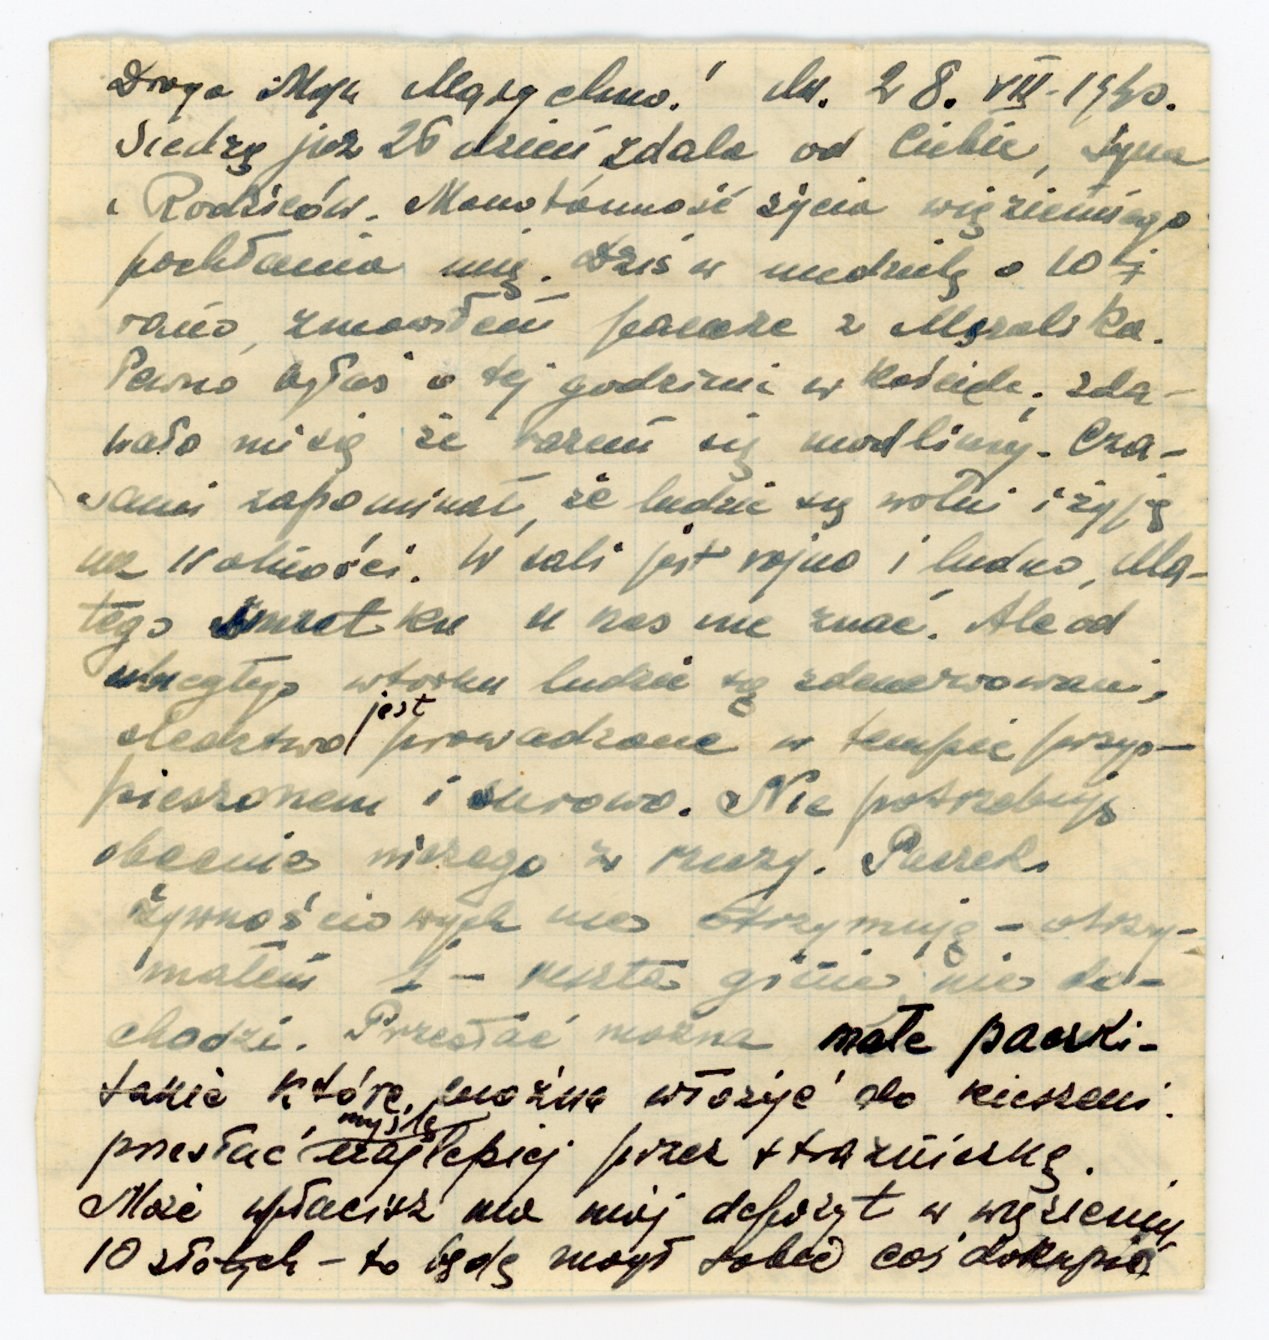 Droga Moja Maszeńko! dn. 28. VII-1940.
Siedzę już 26 dzień zdala od Ciebie, Syna
i Rodziców. Monotonność życia więziennego
pochłania mię. Dziś w niedzielę o 10 tj
rano, zmówiłem pacierz z Marszalską.
Pewno byłaś o tej godzinie w kościele, zda-
wało mi się że razem się modlimy. Cza-
sami zapominać, że ludzie są wolni i żyją
na wolności. W sali jest rojno i ludno, dla-
tego smutku u nas nie znać. Ale od
ubiegłego wtorku ludzie są zdenerwowani,
śledztwo jest prowadzone w tempie przys-
pieszonem i surowo. Nie potrzebuję
obecnie niczego z rzeczy. Paczek
żywnościowych nie otrzymuję - otrzy-
małem 1 - reszta ginie, nie do-
chodzi. Przesłać można małe paczki -
takie które można włożyć do kieszeni.
przesłać, myślę najlepiej przez strażniczkę.
Może wpłacisz na mój depozyt w więzieniu
10 złotych - to będę mógł sobie coś dokupić